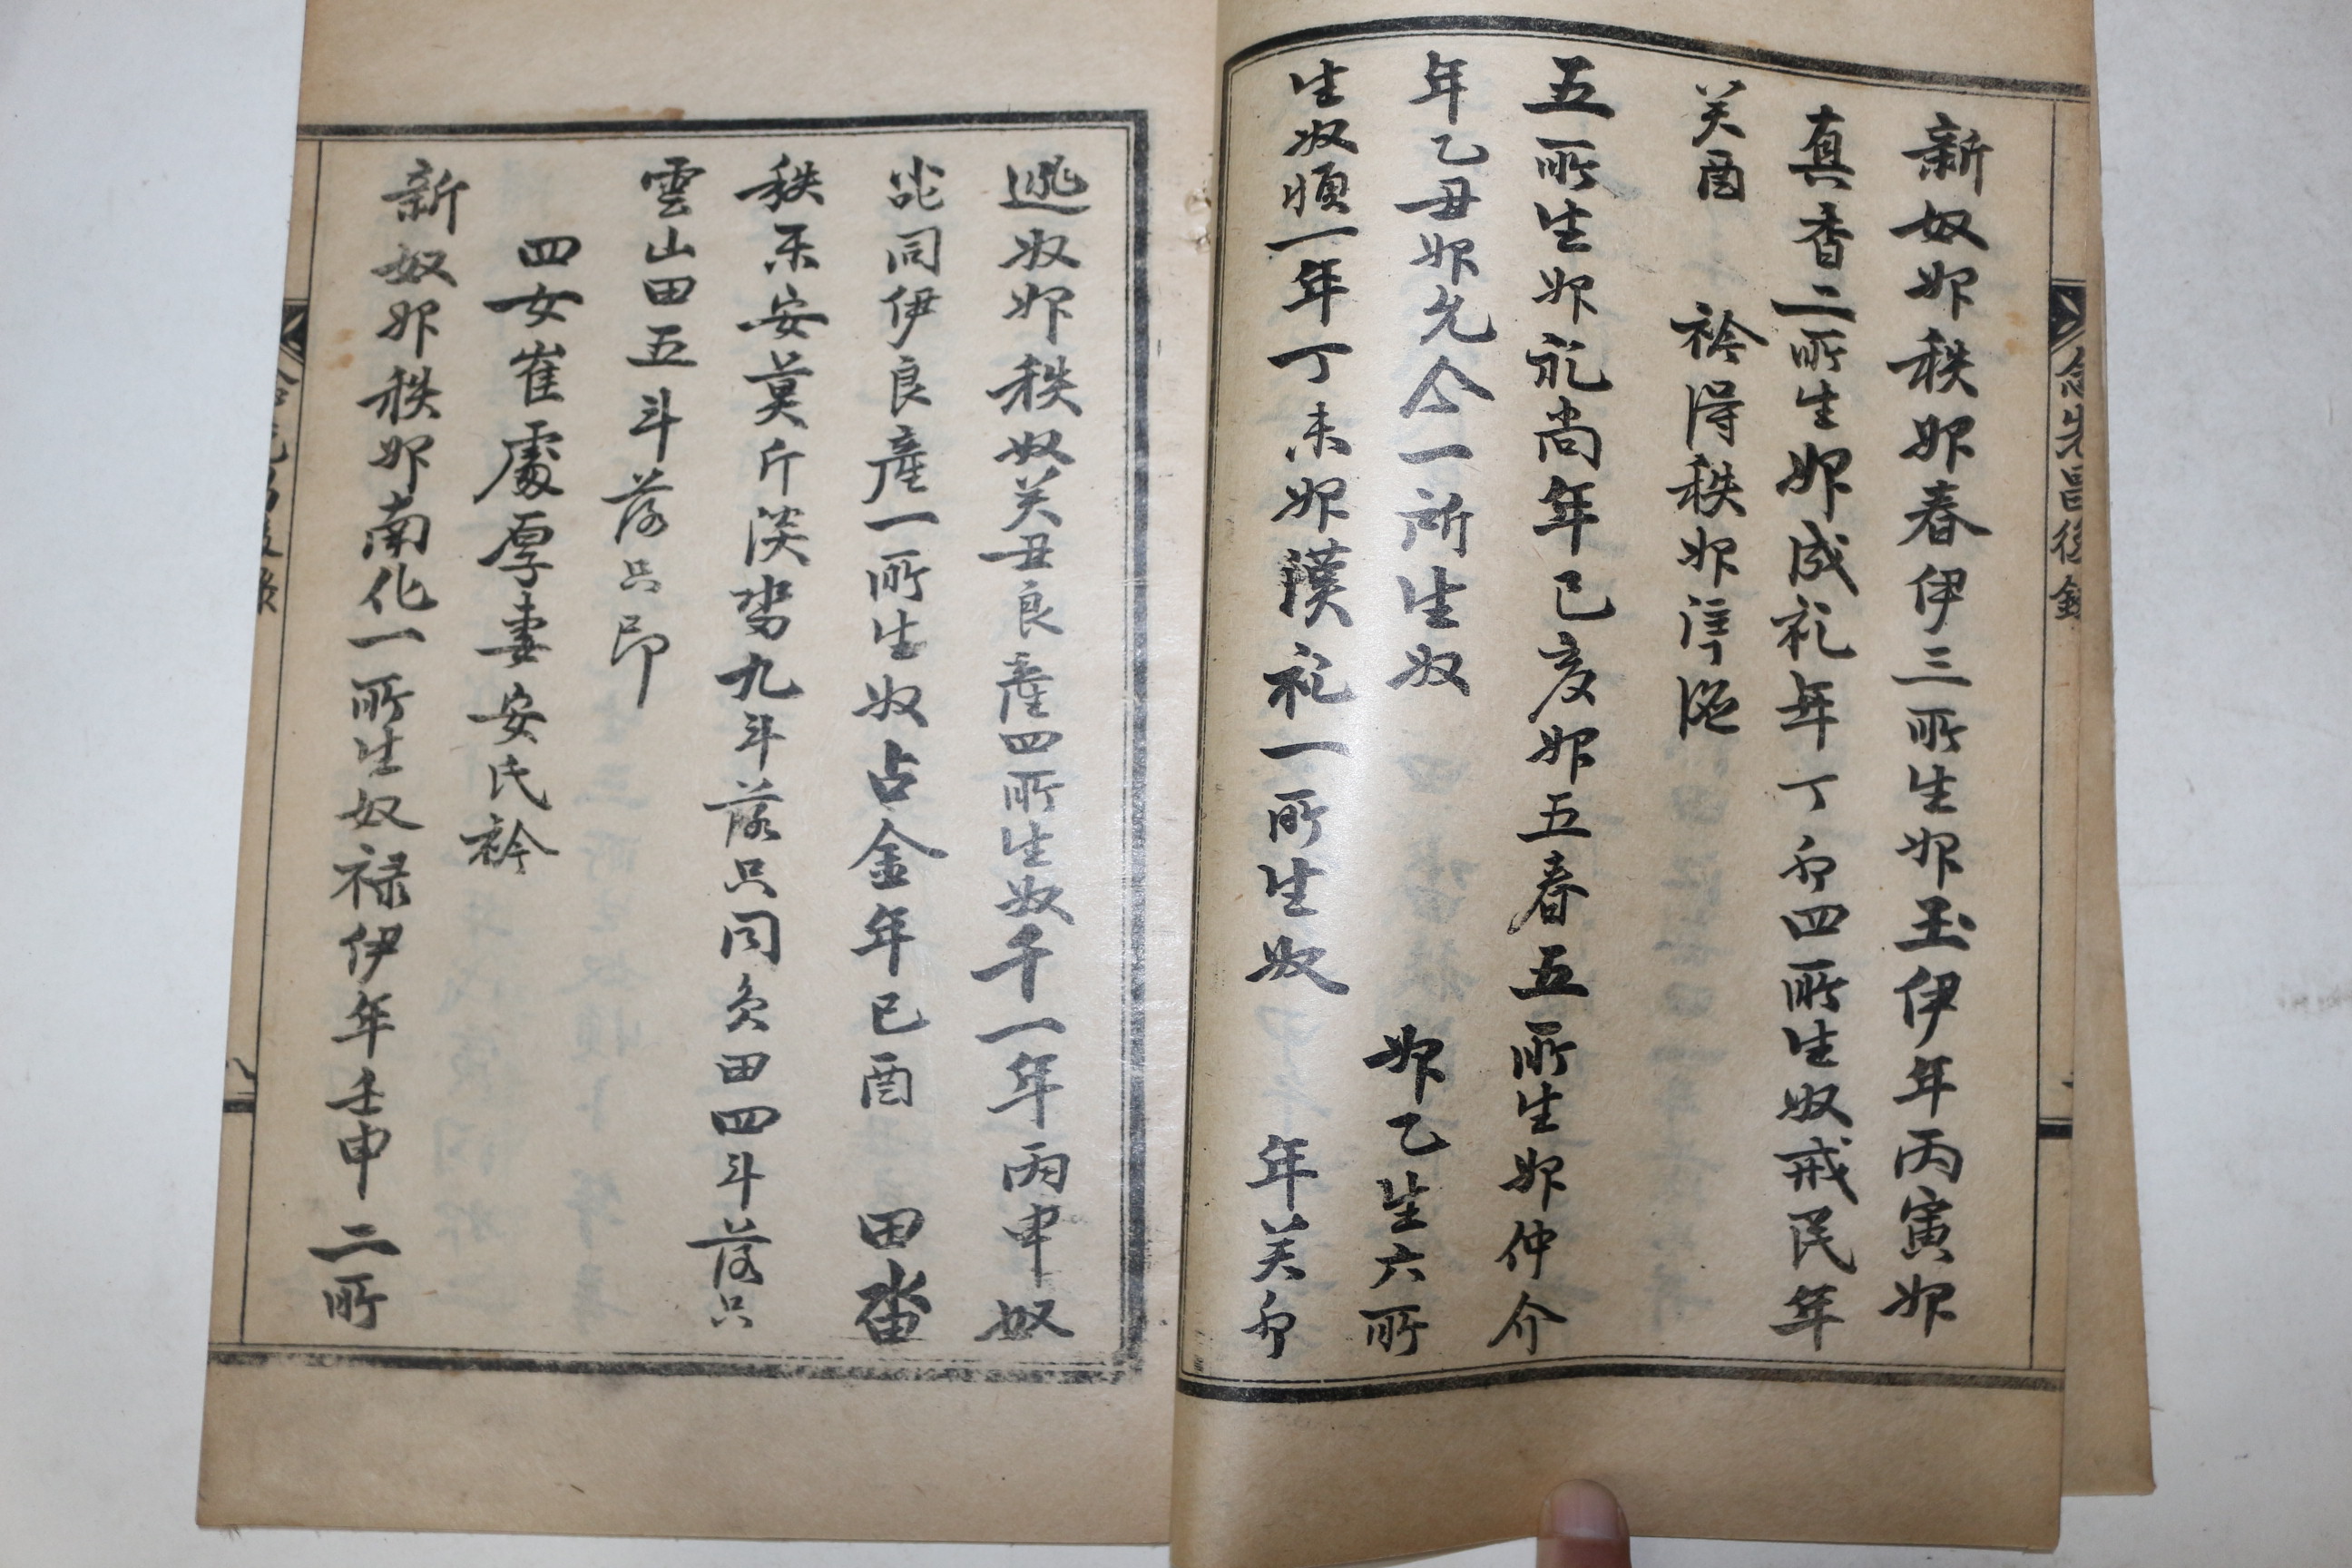 新奴婢秩婢春伊三所生婢玉伊年丙寅婢
真香二所生婢成礼年丁卯四所生奴戒民年
癸酉 衿得秩婢
五所生婢礼尚年己亥婢五春五所生婢仲介
年乙丑婢先今一所生奴 婢乙生六所
生奴順一年丁未婢漢礼一所生奴 年癸卯
逃奴婢秩奴癸丑良産四所生奴千一年丙申奴
同伊良産一所生奴占金年己酉 田畓
秩 安莫斤 畓九斗落只同 田四斗落只
雲山田五斗落只印
四女崔處厚妻安氏衿
新奴婢秩婢南化一所生奴禄伊年壬申二所
念先 後錄